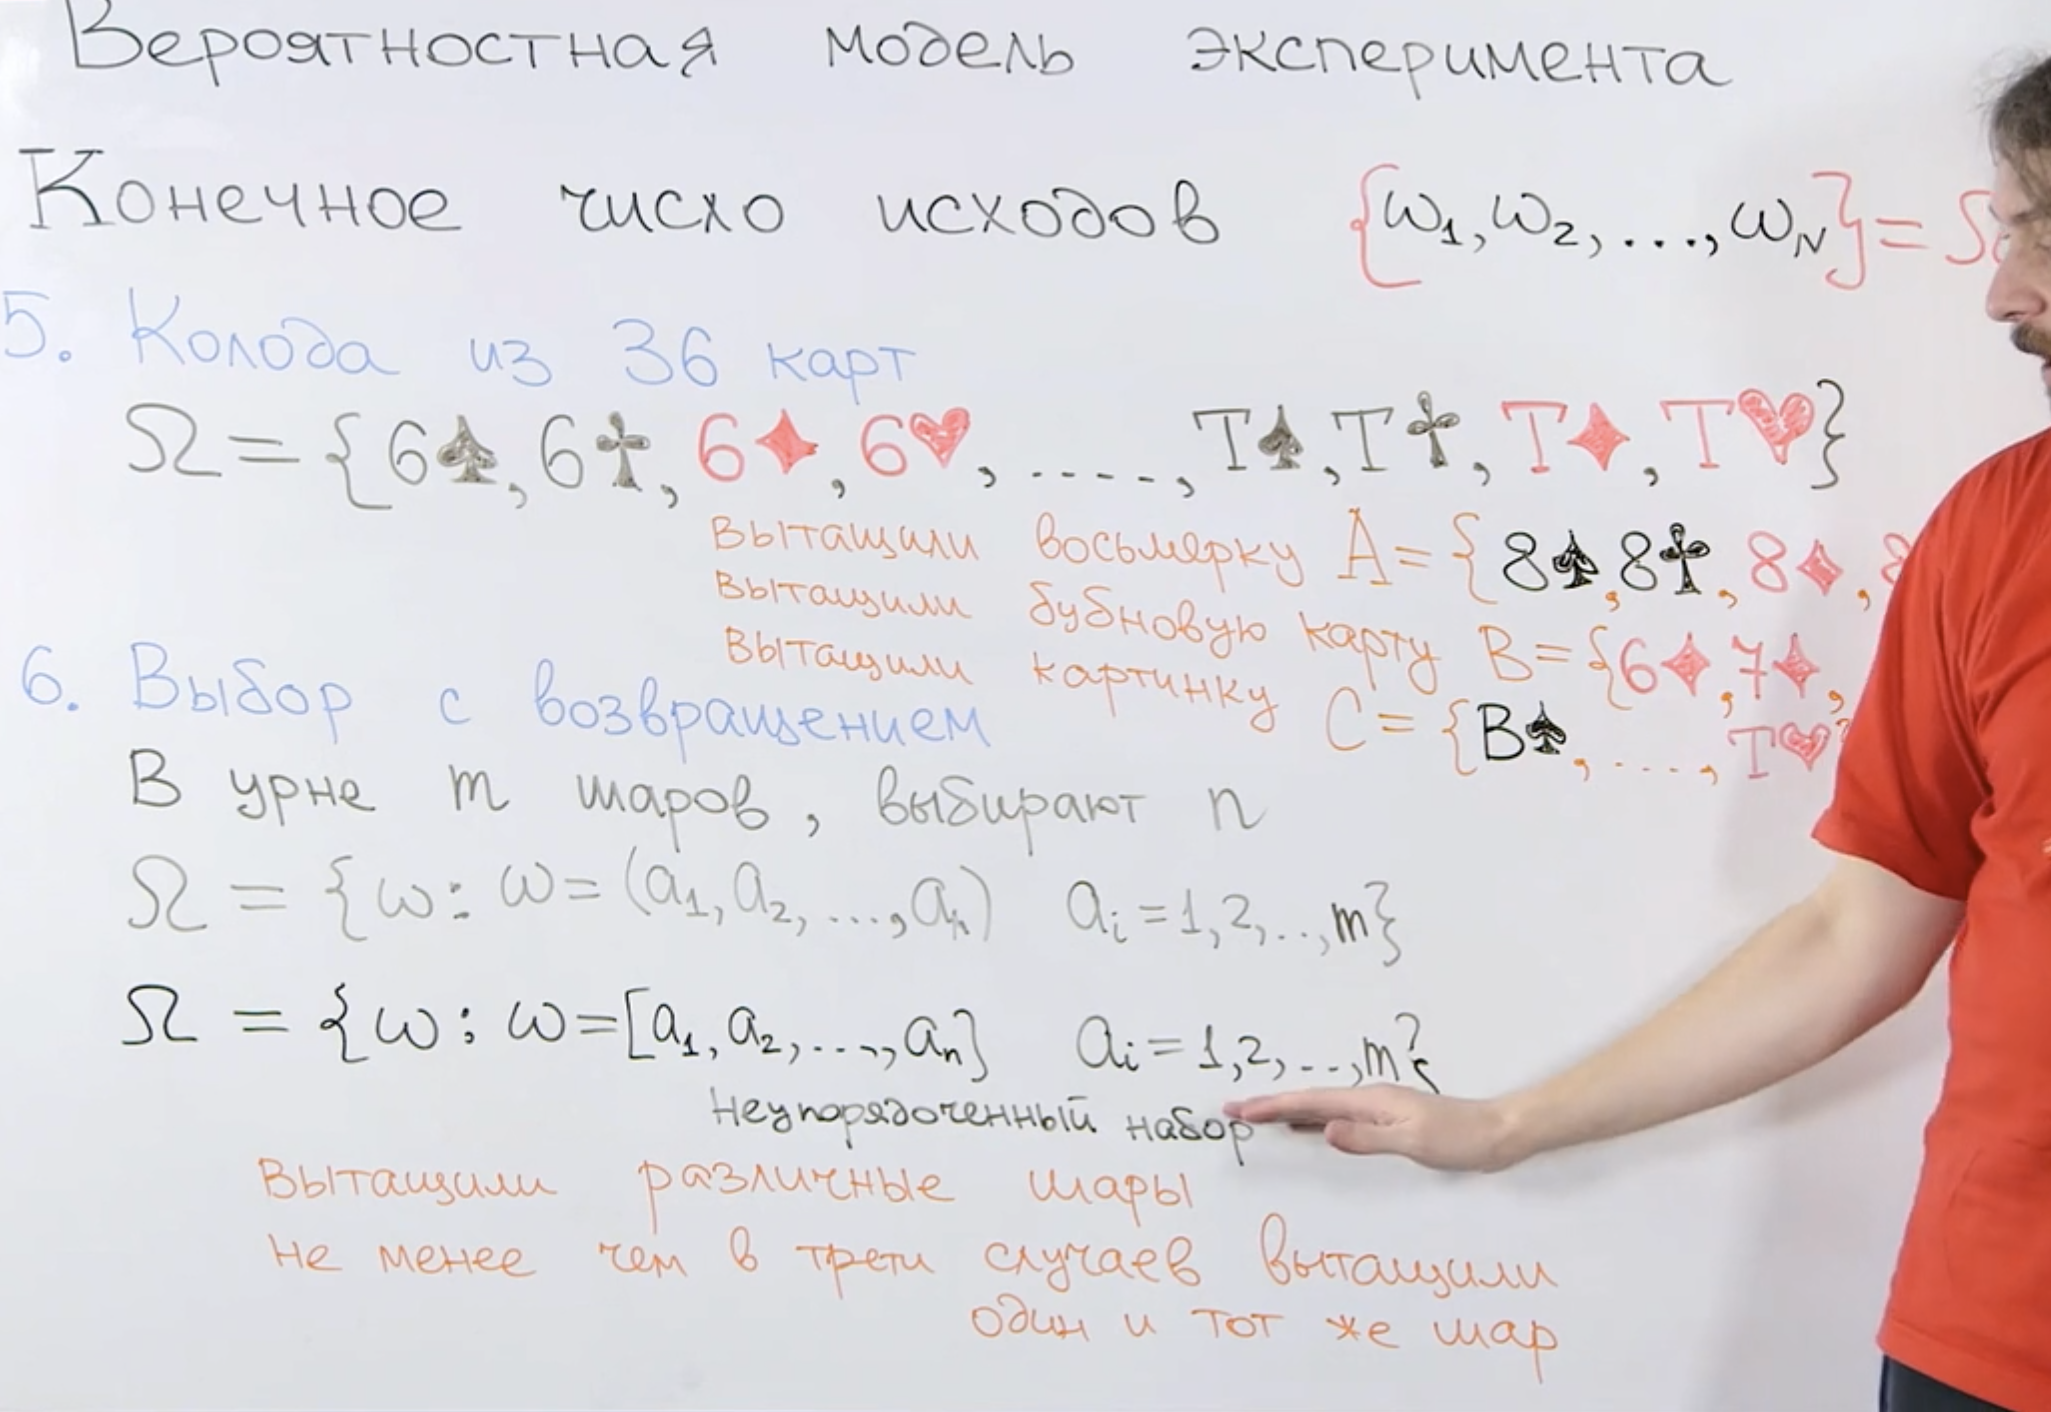 Вероятностная модель эксперимента
Конечное число исходов {ω₁, ω₂, ..., ω_N} =
5. Колода из 36 карт
Ω = {6♠, 6♣, 6♦, 6♥, ...., Т♠, Т♣, Т♦, Т♥}
вытащили восьмерку A = {8♠, 8♣, 8♦,
вытащили бубновую карту B = {6♦, 7♦,
вытащили картинку C = {В♠, ...., Т♥}
6. Выбор с возвращением
В урне m шаров, выбирают n
Ω = {ω: ω = (a₁, a₂, ..., aₙ) aᵢ = 1, 2, .., m}
Ω = {ω: ω = [a₁, a₂, ..., aₙ] aᵢ = 1, 2, .., m}
Неупорядоченный набор
вытащили различные шары
не менее чем в трети случаев вытащили
один и тот же шар